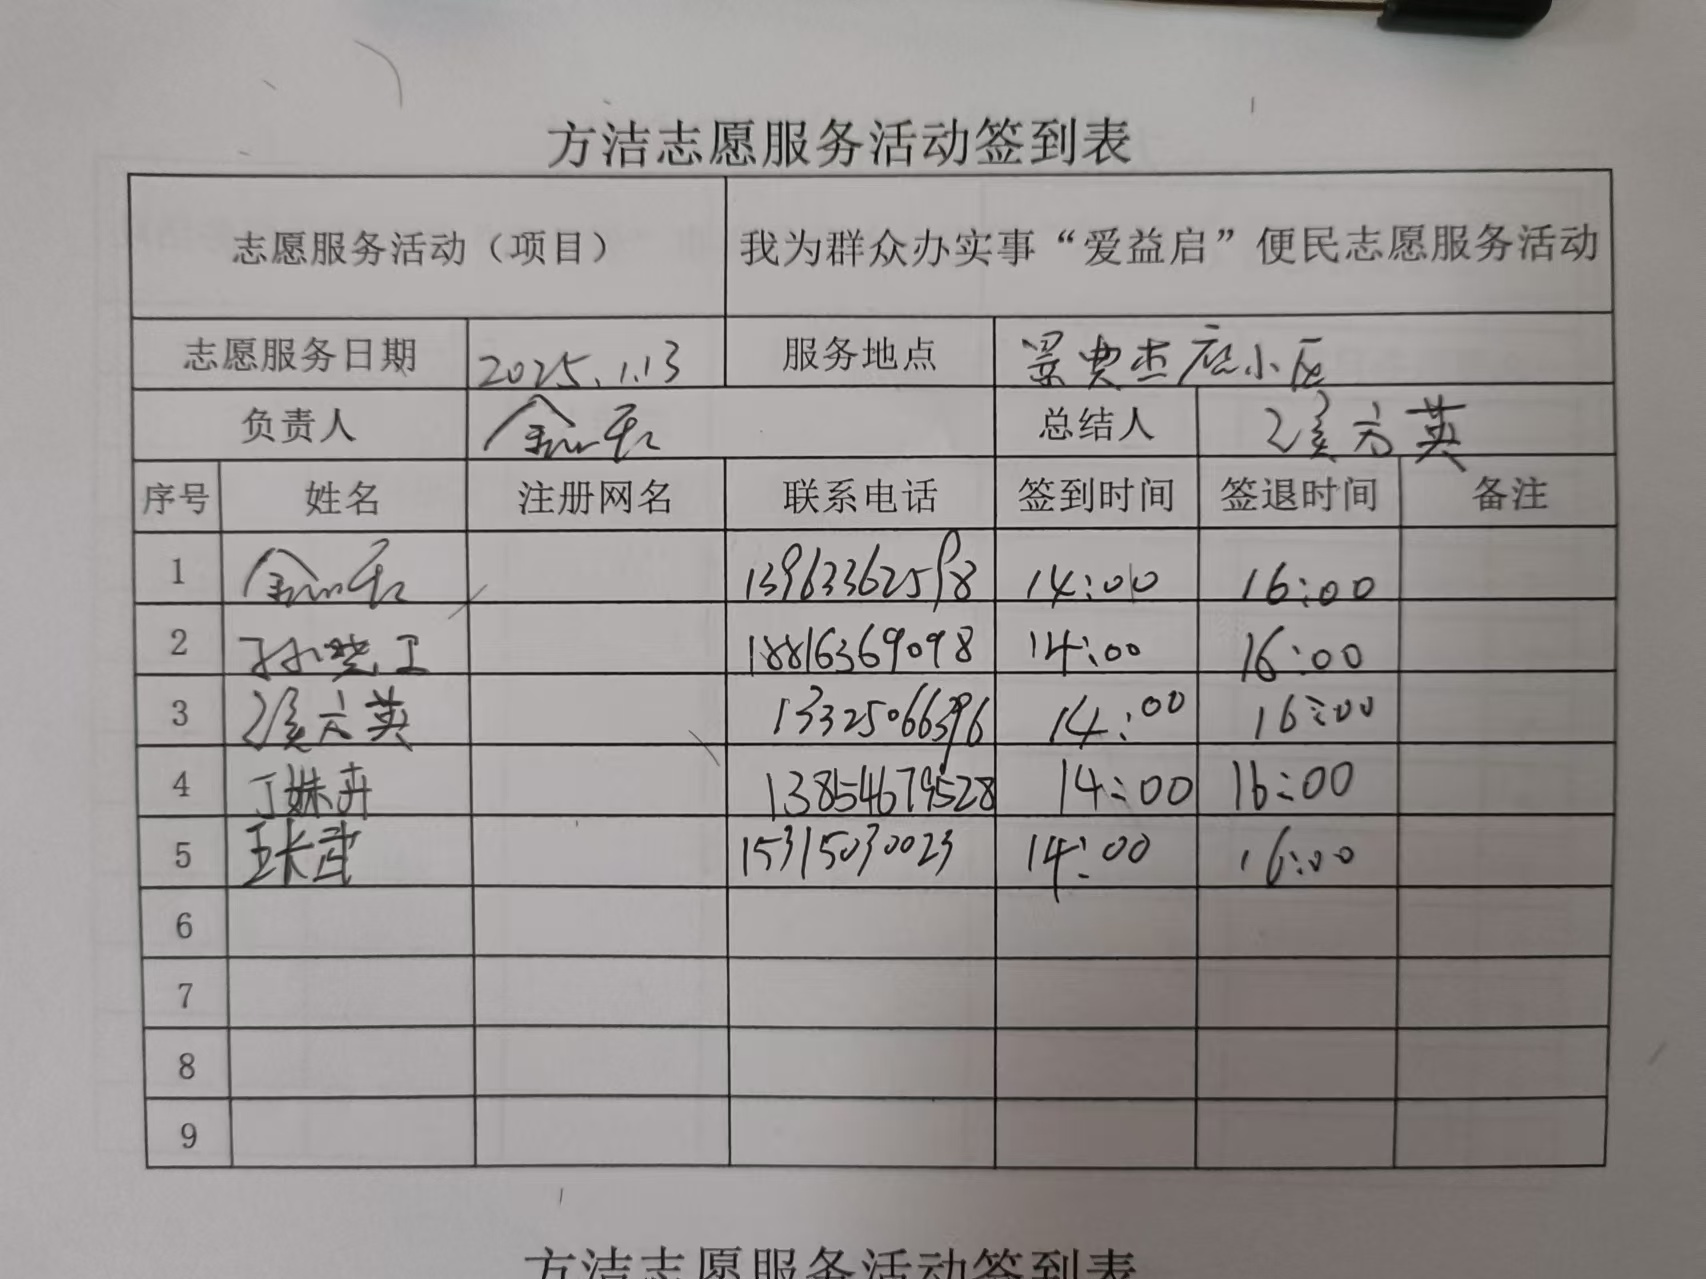 方洁志愿服务活动签到表
志愿服务活动（项目） 我为群众办实事“爱益启”便民志愿服务活动
志愿服务日期 2025.1.13 服务地点 小区
负责人 总结人 英
序号 姓名 注册网名 联系电话 签到时间 签退时间 备注
1 13963362598 14:00 16:00
2 孙 18816369098 14:00 16:00
3 英 13325066396 14:00 16:00
4 丁姝卉 13854679528 14:00 16:00
5 王长武 15315030023 14:00 16:00
6
7
8
9
方洁志愿服务活动签到表